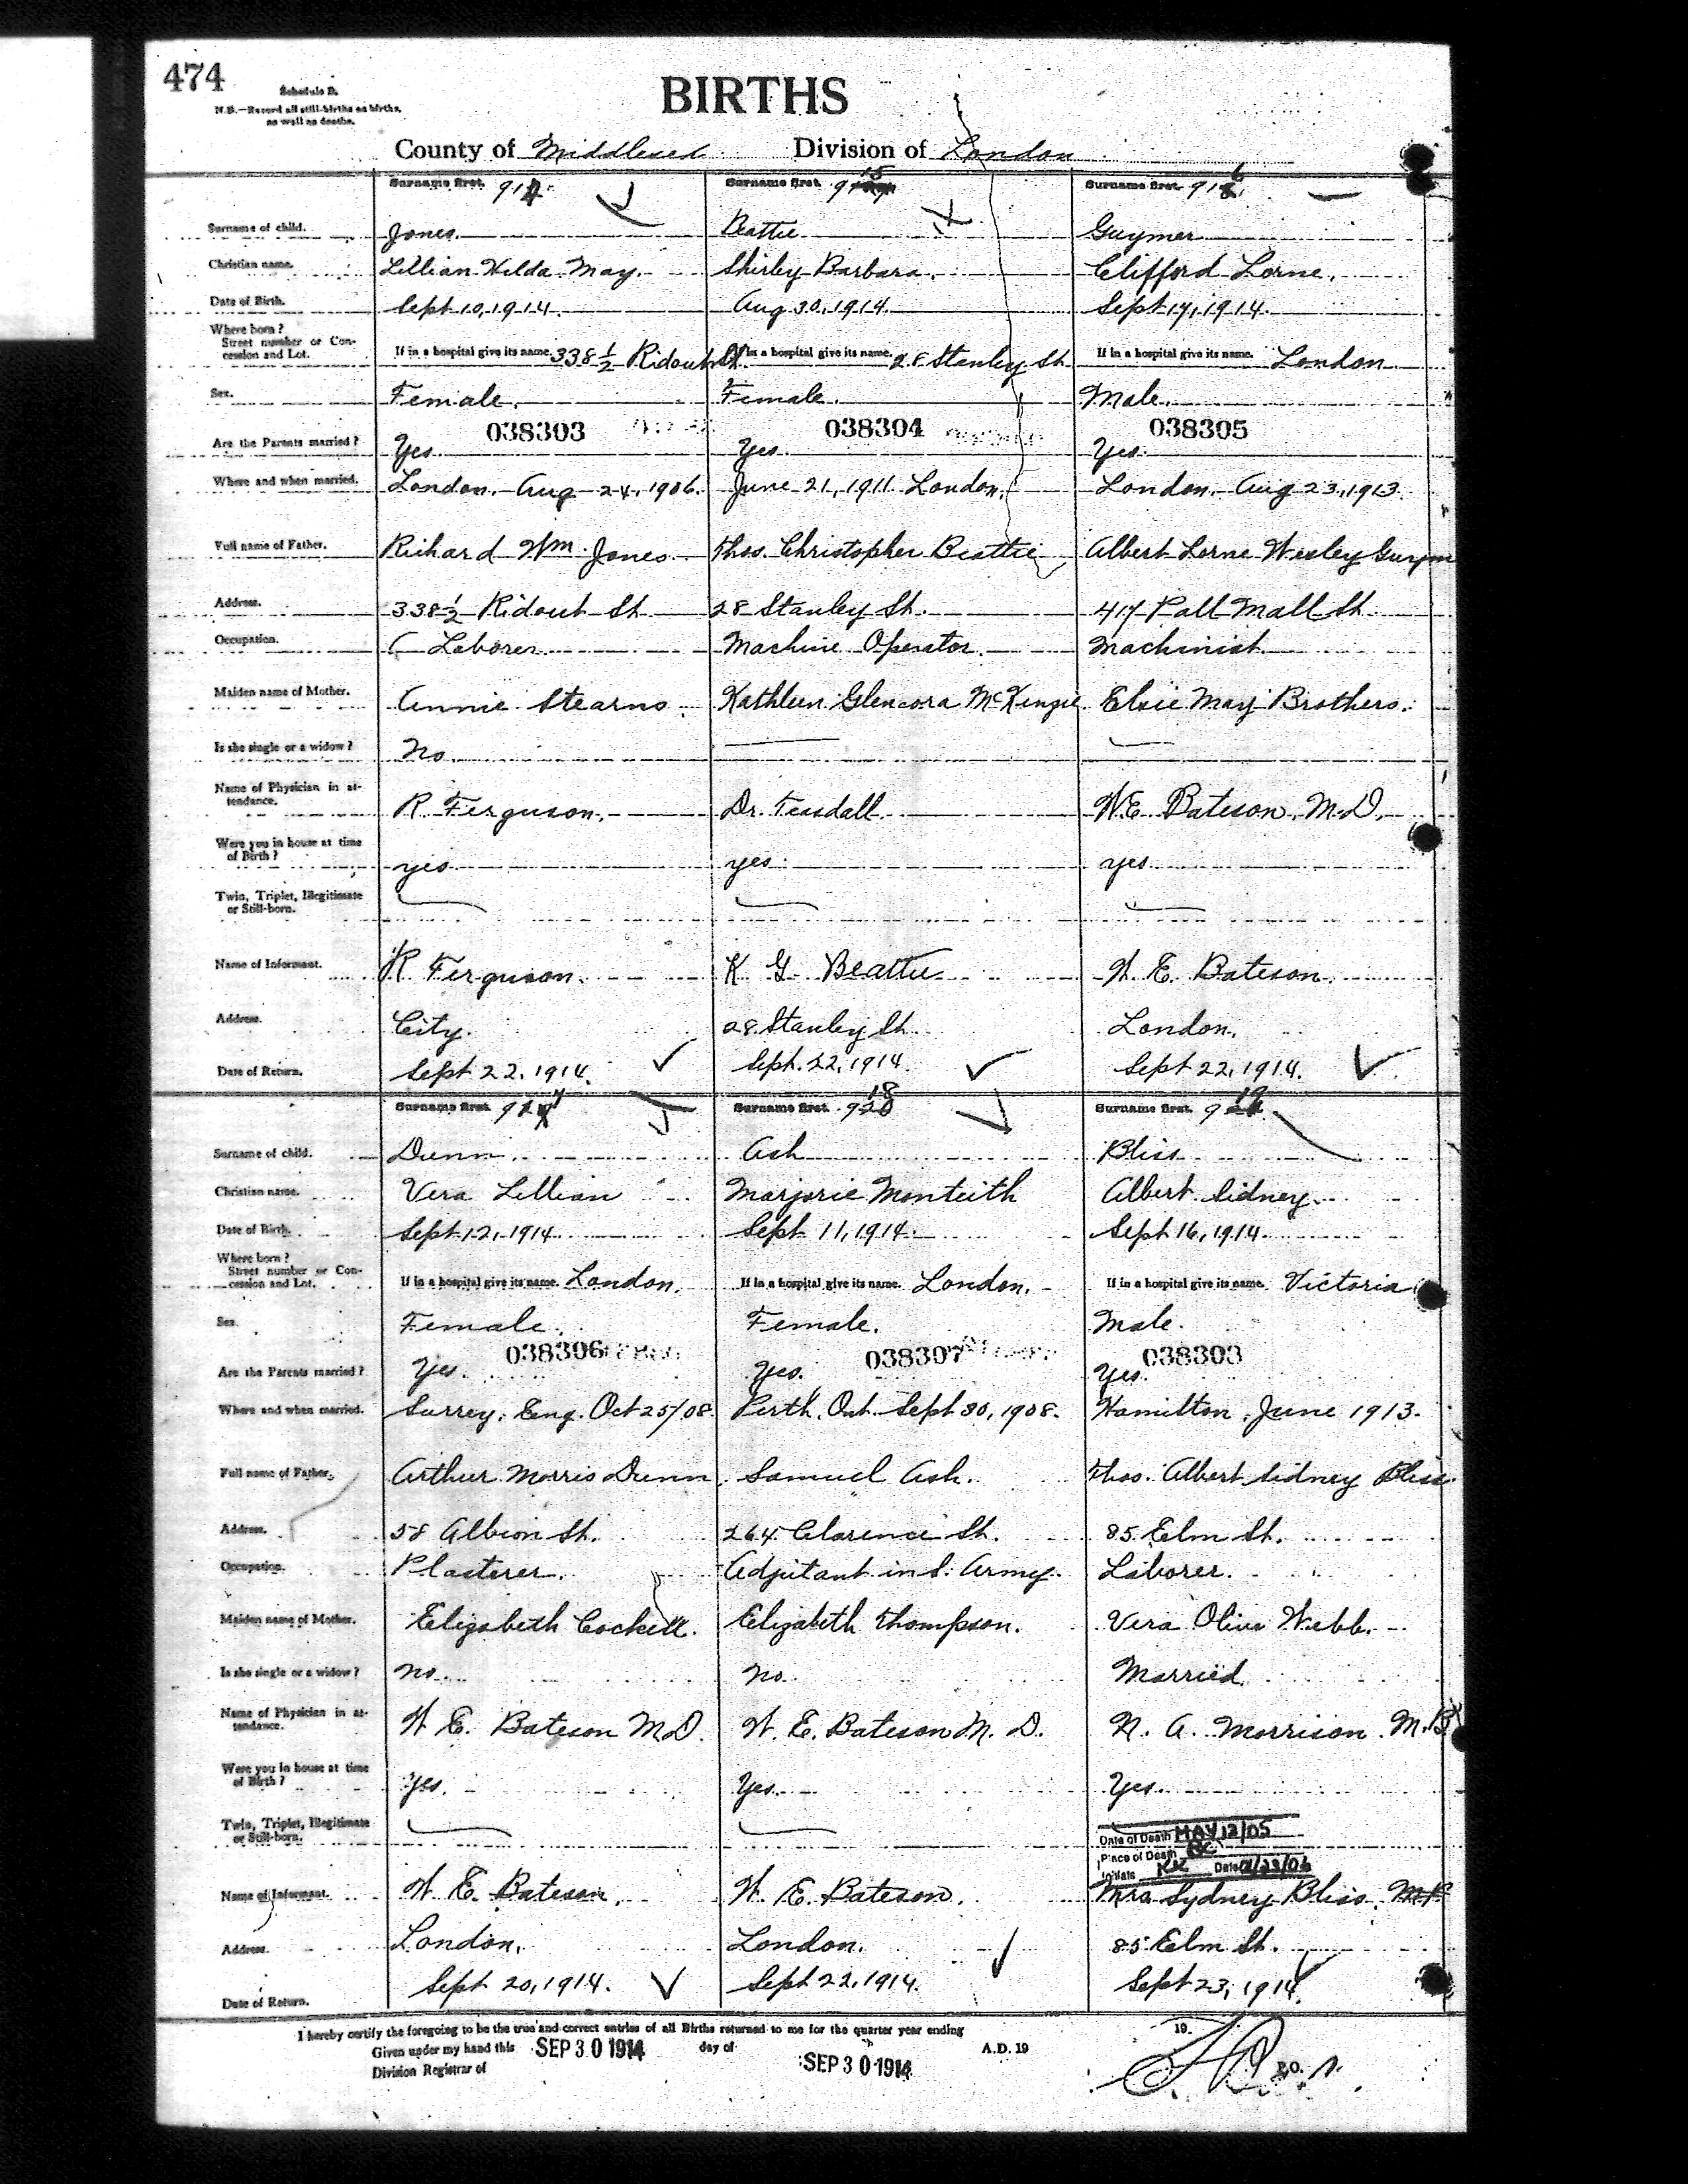 474
Schedule B.
N.B.—Record all still-births as births,
as well as deaths.
BIRTHS
County of Middlesex Division of London
Surname first. 914 Surname first. 915 Surname first. 916
Surname of child. Jones. Beattie Guymer
Christian name. Lillian Hilda May. Shirley Barbara. Clifford Lorne.
Date of Birth. Sept 10, 1914 Aug 30, 1914 Sept 17, 1914.
Where born?
Street number or Con-
cession and Lot. If in a hospital give its name. 338 1/2 Ridout St. If in a hospital give its name. 28 Stanley St. If in a hospital give its name. London
Sex. Female. Female. Male.
038303 038304 038305
Are the Parents married? Yes Yes. Yes.
Where and when married. London. Aug 24, 1906. June 21, 1911 London. London. Aug 23, 1913.
Full name of Father. Richard Wm. Jones Thos. Christopher Beattie Albert Lorne Wesley Guym
Address. 338 1/2 Ridout St 28 Stanley St. 417 Pall Mall St.
Occupation. Laborer Machine Operator. Machinist
Maiden name of Mother. Annie Stearns. Kathleen Glencora McKenzie Elsie May Brothers.
Is she single or a widow? No.
Name of Physician in at-
tendance. R Ferguson. Dr. Teasdall. W.E. Bateson, M.D.
Were you in house at time
of Birth? yes yes. yes
Twin, Triplet, Illegitimate
or Still-born.
Name of Informant. R Ferguson. K G Beattie W. E. Bateson.
Address. City. 28 Stanley St. London.
Date of Return. Sept 22, 1914. Sept. 22, 1914. Sept 22, 1914.
Surname first. 917 Surname first. 918 Surname first. 919
Surname of child. Dunn. Ash Bliss
Christian name. Vera Lillian Marjorie Monteith Albert Sidney.
Date of Birth. Sept 12, 1914 Sept 11, 1914. Sept 16, 1914.
Where born?
Street number or Con-
cession and Lot. If in a hospital give its name. London. If in a hospital give its name. London. If in a hospital give its name. Victoria
Sex. Female. Female. Male.
038306 038307 038308
Are the Parents married? Yes. Yes. Yes.
Where and when married. Surrey, Eng. Oct 25/08. Perth, Ont. Sept 30, 1908. Hamilton, June 1913.
Full name of Father. Arthur Morris Dunn. Samuel Ash. Thos. Albert Sidney Bliss.
Address. 58 Albion St. 264 Clarence St. 85 Elm St.
Occupation. Plasterer. Adjutant in S. Army. Laborer.
Maiden name of Mother. Elizabeth Cockett. Elizabeth Thompson. Vera Olive Webb.
Is she single or a widow? No. No. Married.
Name of Physician in at-
tendance. W E. Bateson M.D. W. E. Bateson M. D. N. A. Morrison M.B.
Were you in house at time
of Birth? Yes. Yes. Yes.
Twin, Triplet, Illegitimate
or Still-born.
Date of Death MAY 12/05
Place of Death
Initials Date
Name of Informant. W E. Bateson. W. E. Bateson. Mrs Sydney Bliss.
Address. London. London. 85 Elm St.
Date of Return. Sept 20, 1914. Sept 22, 1914. Sept 23, 1914.
I hereby certify the foregoing to be the true and correct entries of all Births returned to me for the quarter year ending 19
Given under my hand this SEP 30 1914 day of SEP 30 1914 A.D. 19
Division Registrar of P.O.